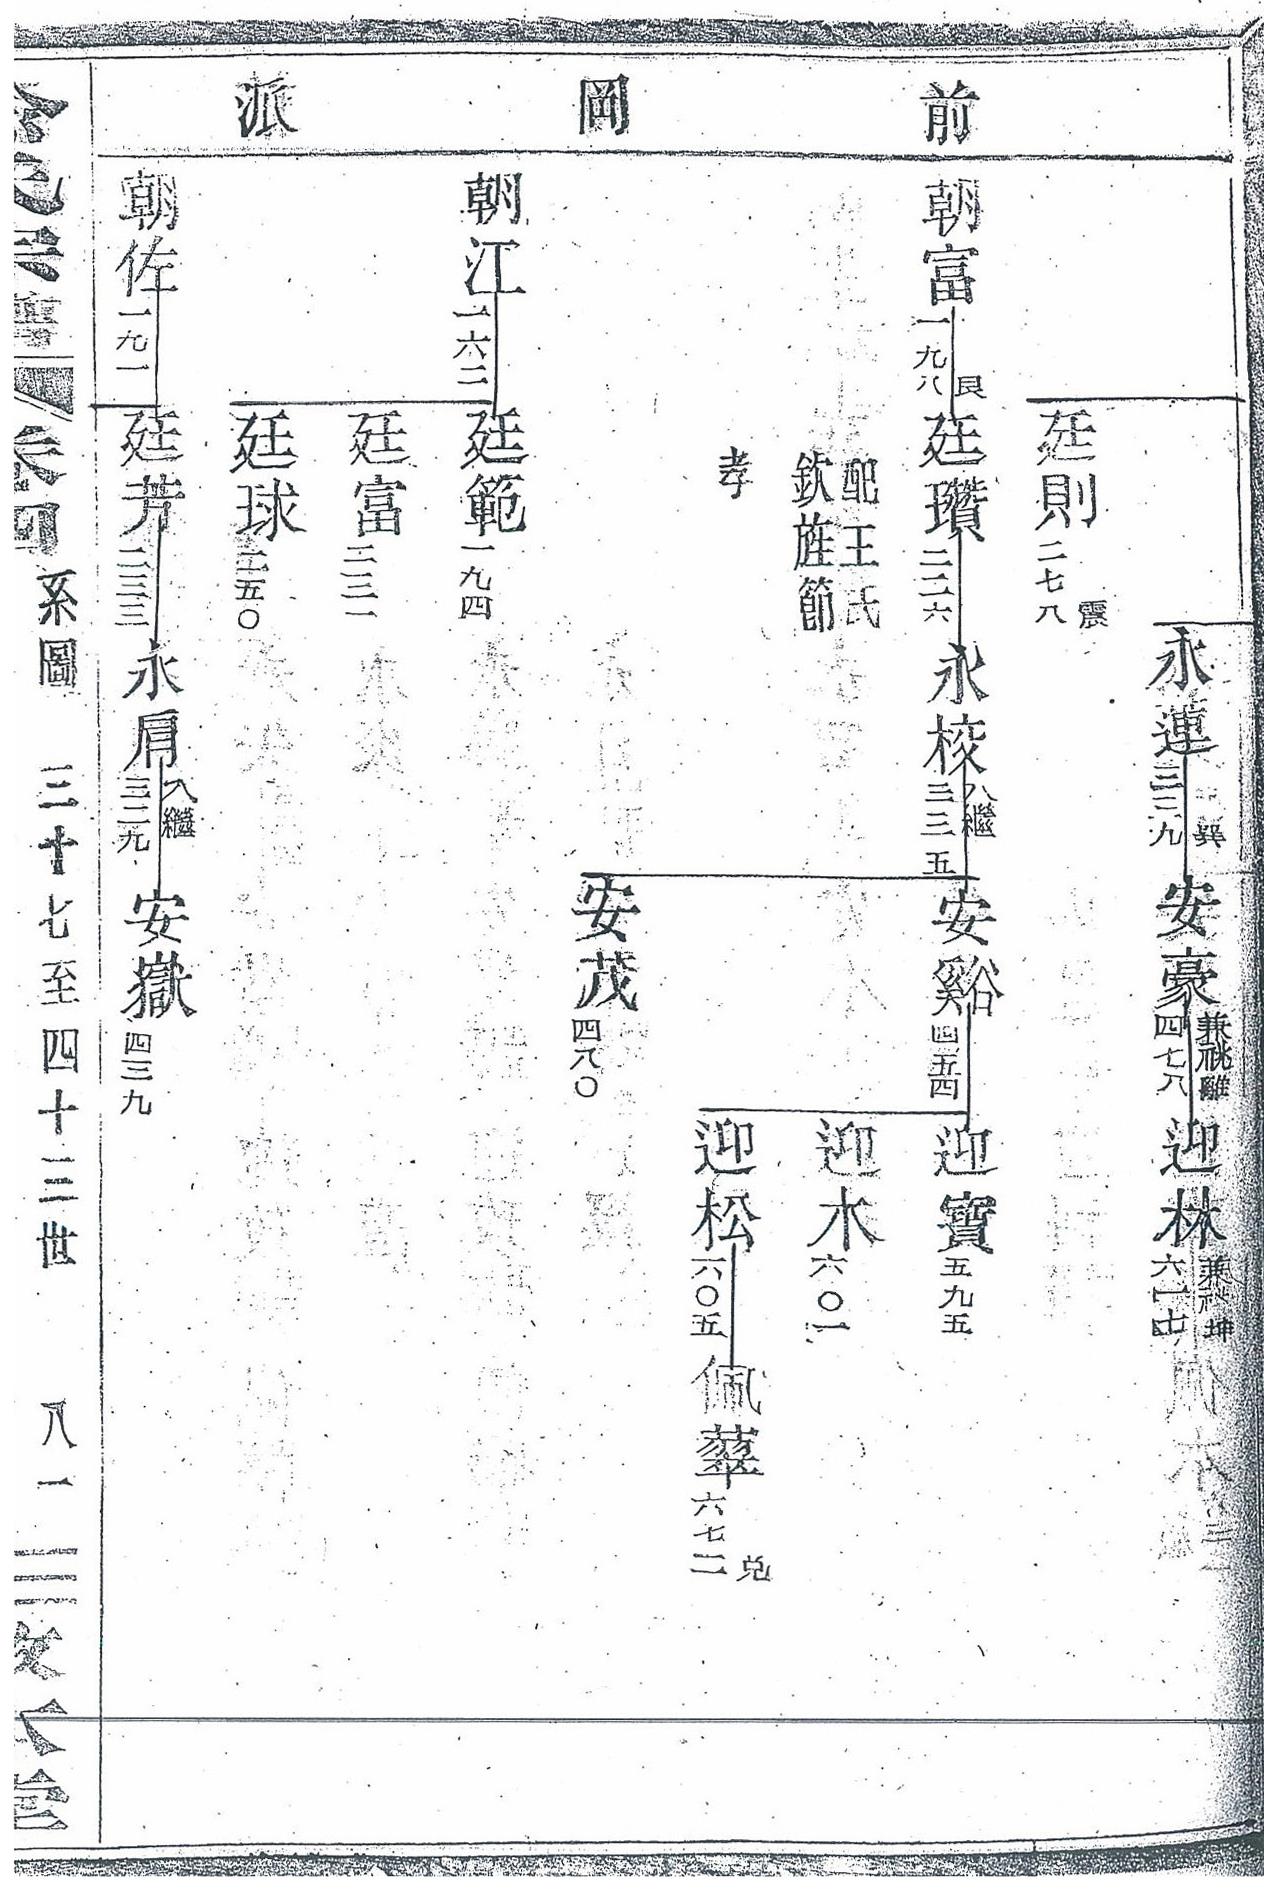 前岡派
永蓮 三二九 巽
安豪 四七八 兼祧離
迎林 兼祧坤
廷則 二七八 震
朝富 一九八 艮
廷瓚 二二六
配王氏
欽旌節
孝
永校 三三五 入繼
安谿 四五四
迎寶 五九五
迎水 六〇一
迎松 六〇五
佩蕐 六七二 兌
安茂 四八〇
朝江 一六二
廷範 一九四
廷富 二三一
廷球 二五〇
朝佐 一九一
廷芳 二三三
永肩 三二九 入繼
安嶽 四三九
卷四 系圖 三十七至四十三世 八一